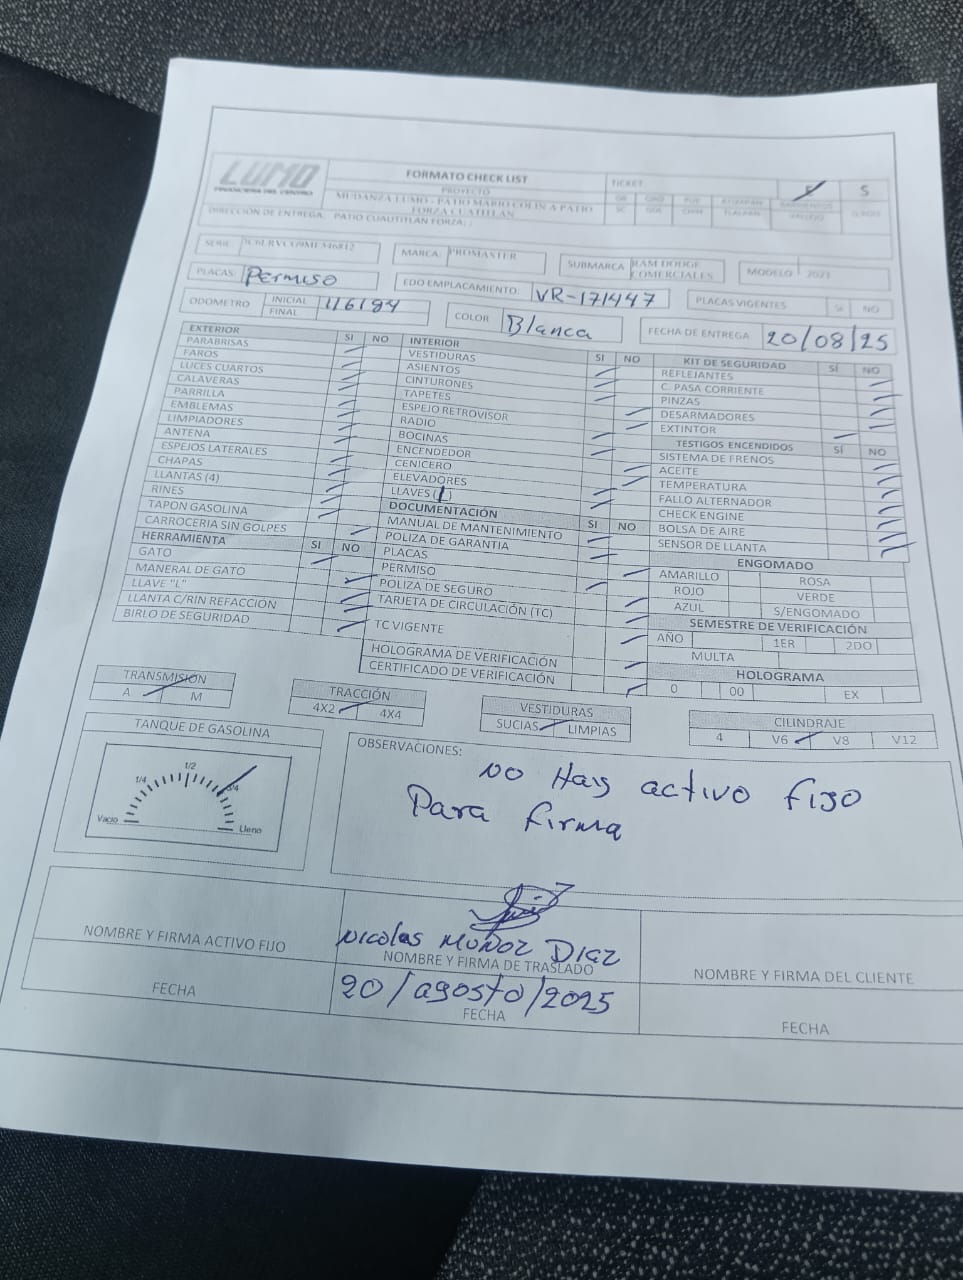 LUMO
FINANCIERA DEL CENTRO
FORMATO CHECK LIST
PROYECTO
MUDANZA LUMO - PATIO MARIO COLIN A PATIO
FORZA CUATITLAN
TICKET:
E S
DIRECCIÓN DE ENTREGA: PATIO CUAUTITLAN FORZA: ;
SERIE:
MARCA: PROMASTER
SUBMARCA RAM DODGE
COMERCIALES
MODELO 2021
PLACAS: Permiso
EDO EMPLACAMIENTO: VR-171447
PLACAS VIGENTES SI NO
ODOMETRO INICIAL 116194
FINAL
COLOR Blanca
FECHA DE ENTREGA 20/08/25
EXTERIOR SI NO
PARABRISAS
FAROS
LUCES CUARTOS
CALAVERAS
PARRILLA
EMBLEMAS
LIMPIADORES
ANTENA
ESPEJOS LATERALES
CHAPAS
LLANTAS (4)
RINES
TAPON GASOLINA
CARROCERIA SIN GOLPES
HERRAMIENTA SI NO
GATO
MANERAL DE GATO
LLAVE "L"
LLANTA C/RIN REFACCIÓN
BIRLO DE SEGURIDAD
INTERIOR SI NO
VESTIDURAS
ASIENTOS
CINTURONES
TAPETES
ESPEJO RETROVISOR
RADIO
BOCINAS
ENCENDEDOR
CENICERO
ELEVADORES
LLAVES (1)
DOCUMENTACIÓN SI NO
MANUAL DE MANTENIMIENTO
POLIZA DE GARANTIA
PLACAS
PERMISO
POLIZA DE SEGURO
TARJETA DE CIRCULACIÓN (TC)
TC VIGENTE
HOLOGRAMA DE VERIFICACIÓN
CERTIFICADO DE VERIFICACIÓN
KIT DE SEGURIDAD SÍ NO
REFLEJANTES
C. PASA CORRIENTE
PINZAS
DESARMADORES
EXTINTOR
TESTIGOS ENCENDIDOS SÍ NO
SISTEMA DE FRENOS
ACEITE
TEMPERATURA
FALLO ALTERNADOR
CHECK ENGINE
BOLSA DE AIRE
SENSOR DE LLANTA
ENGOMADO
AMARILLO ROSA
ROJO VERDE
AZUL S/ENGOMADO
SEMESTRE DE VERIFICACIÓN
AÑO 1ER 2DO
MULTA
HOLOGRAMA
0 00 EX
TRANSMISIÓN
A M
TRACCIÓN
4X2 4X4
VESTIDURAS
SUCIAS LIMPIAS
CILINDRAJE
4 V6 V8 V12
TANQUE DE GASOLINA
1/4 1/2 3/4
Vacio Lleno
OBSERVACIONES:
NO Hay activo fijo
Para firma
NOMBRE Y FIRMA ACTIVO FIJO
Nicolas Muñoz Diaz
NOMBRE Y FIRMA DE TRASLADO
NOMBRE Y FIRMA DEL CLIENTE
FECHA
20/agosto/2025
FECHA
FECHA